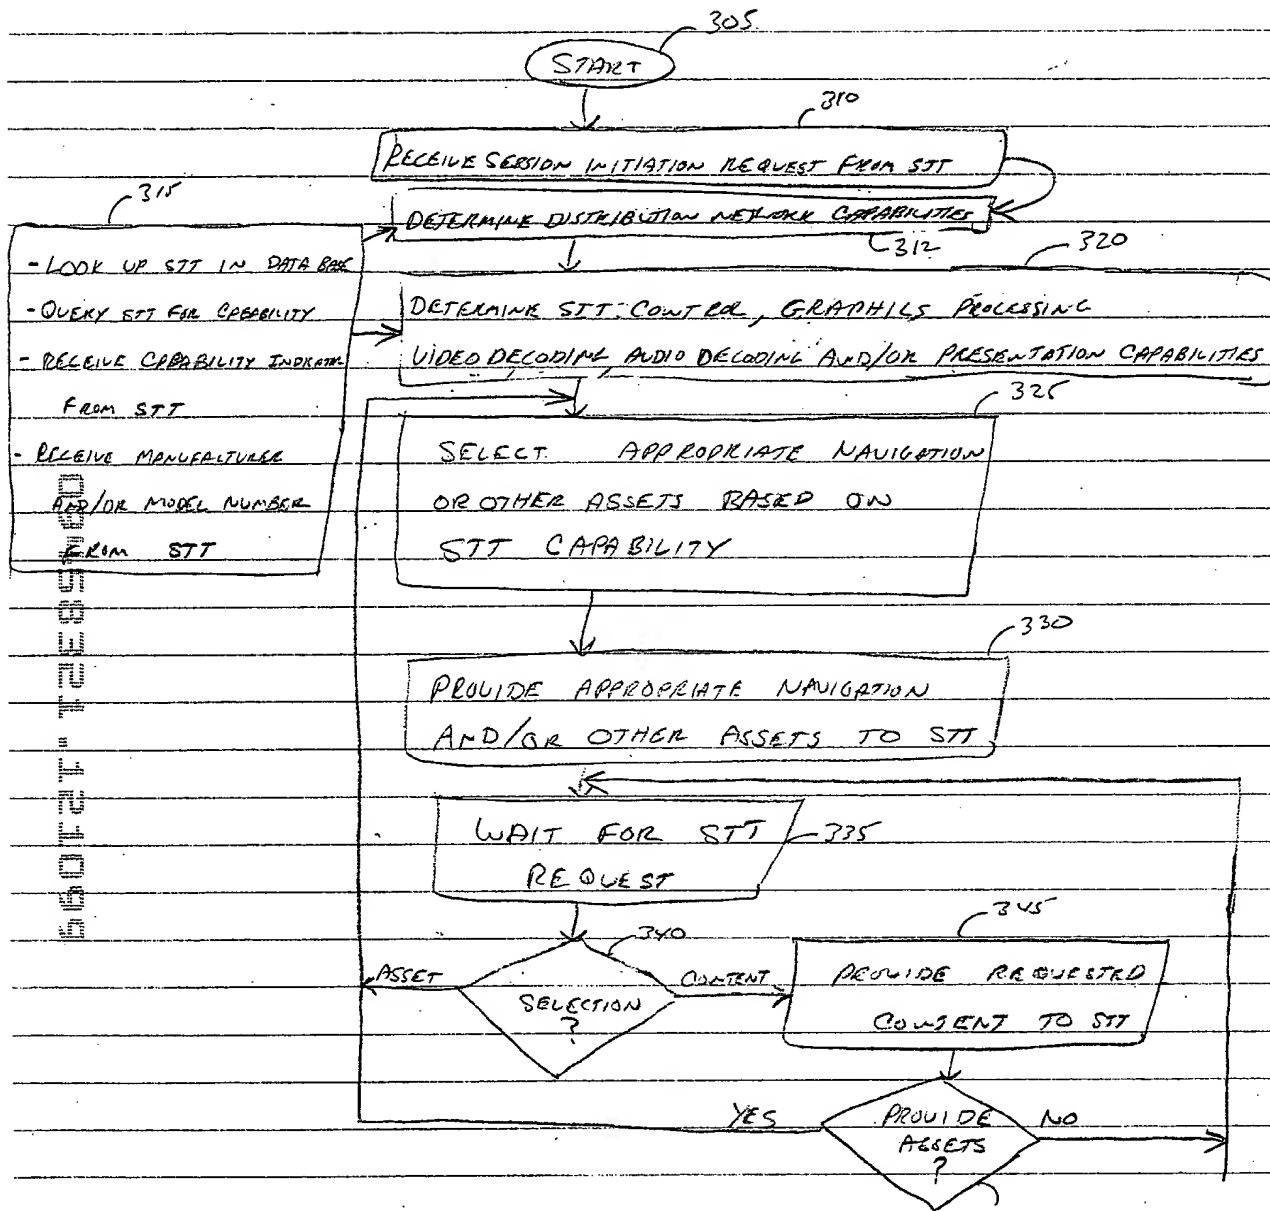 305
START
310
RECEIVE SESSION INITIATION REQUEST FROM STT
315
DETERMINE DISTRIBUTION NETWORK CAPABILITIES
312
320
- LOOK UP STT IN DATA BASE
- QUERY STT FOR CAPABILITY
- RECEIVE CAPABILITY INDICATOR
FROM STT
- RECEIVE MANUFACTURER
AND/OR MODEL NUMBER
FROM STT
DETERMINE STT: CONTROL, GRAPHICS PROCESSING
VIDEO DECODING, AUDIO DECODING AND/OR PRESENTATION CAPABILITIES
325
SELECT APPROPRIATE NAVIGATION
OR OTHER ASSETS BASED ON
STT CAPABILITY
330
PROVIDE APPROPRIATE NAVIGATION
AND/OR OTHER ASSETS TO STT
WAIT FOR STT
REQUEST
335
340
345
ASSET
SELECTION
?
CONTENT
PROVIDE REQUESTED
CONTENT TO STT
YES
PROVIDE
ASSETS
?
NO